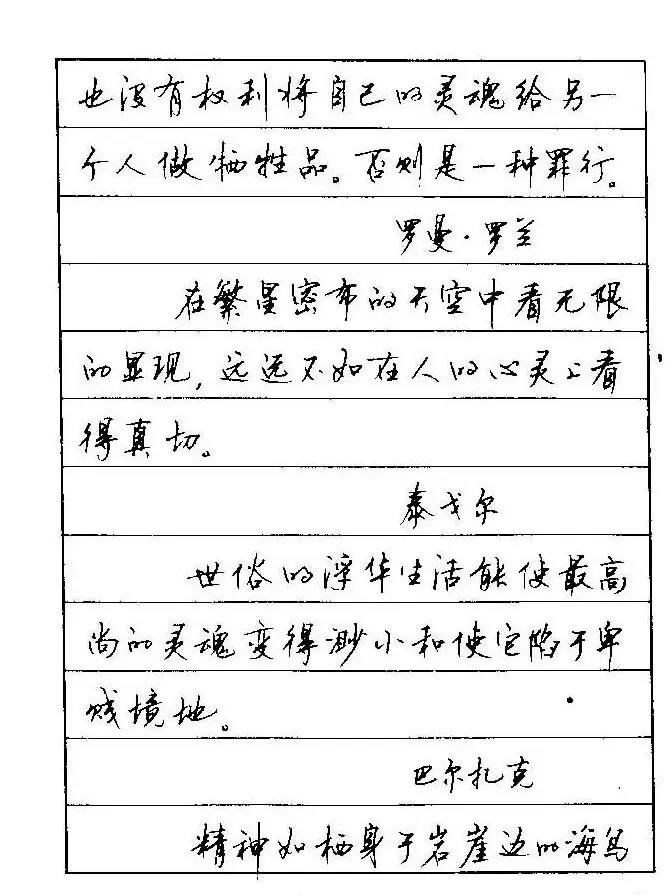 也没有权利将自己的灵魂给另一
个人做牺牲品。否则是一种罪行。
罗曼·罗兰
在繁星密布的天空中看无限
的显现,远远不如在人的心灵上看
得真切。
泰戈尔
世俗的浮华生活能使最高
尚的灵魂变得渺小和使它陷于卑
贱境地。
巴尔扎克
精神如栖身于岩崖边的海鸟